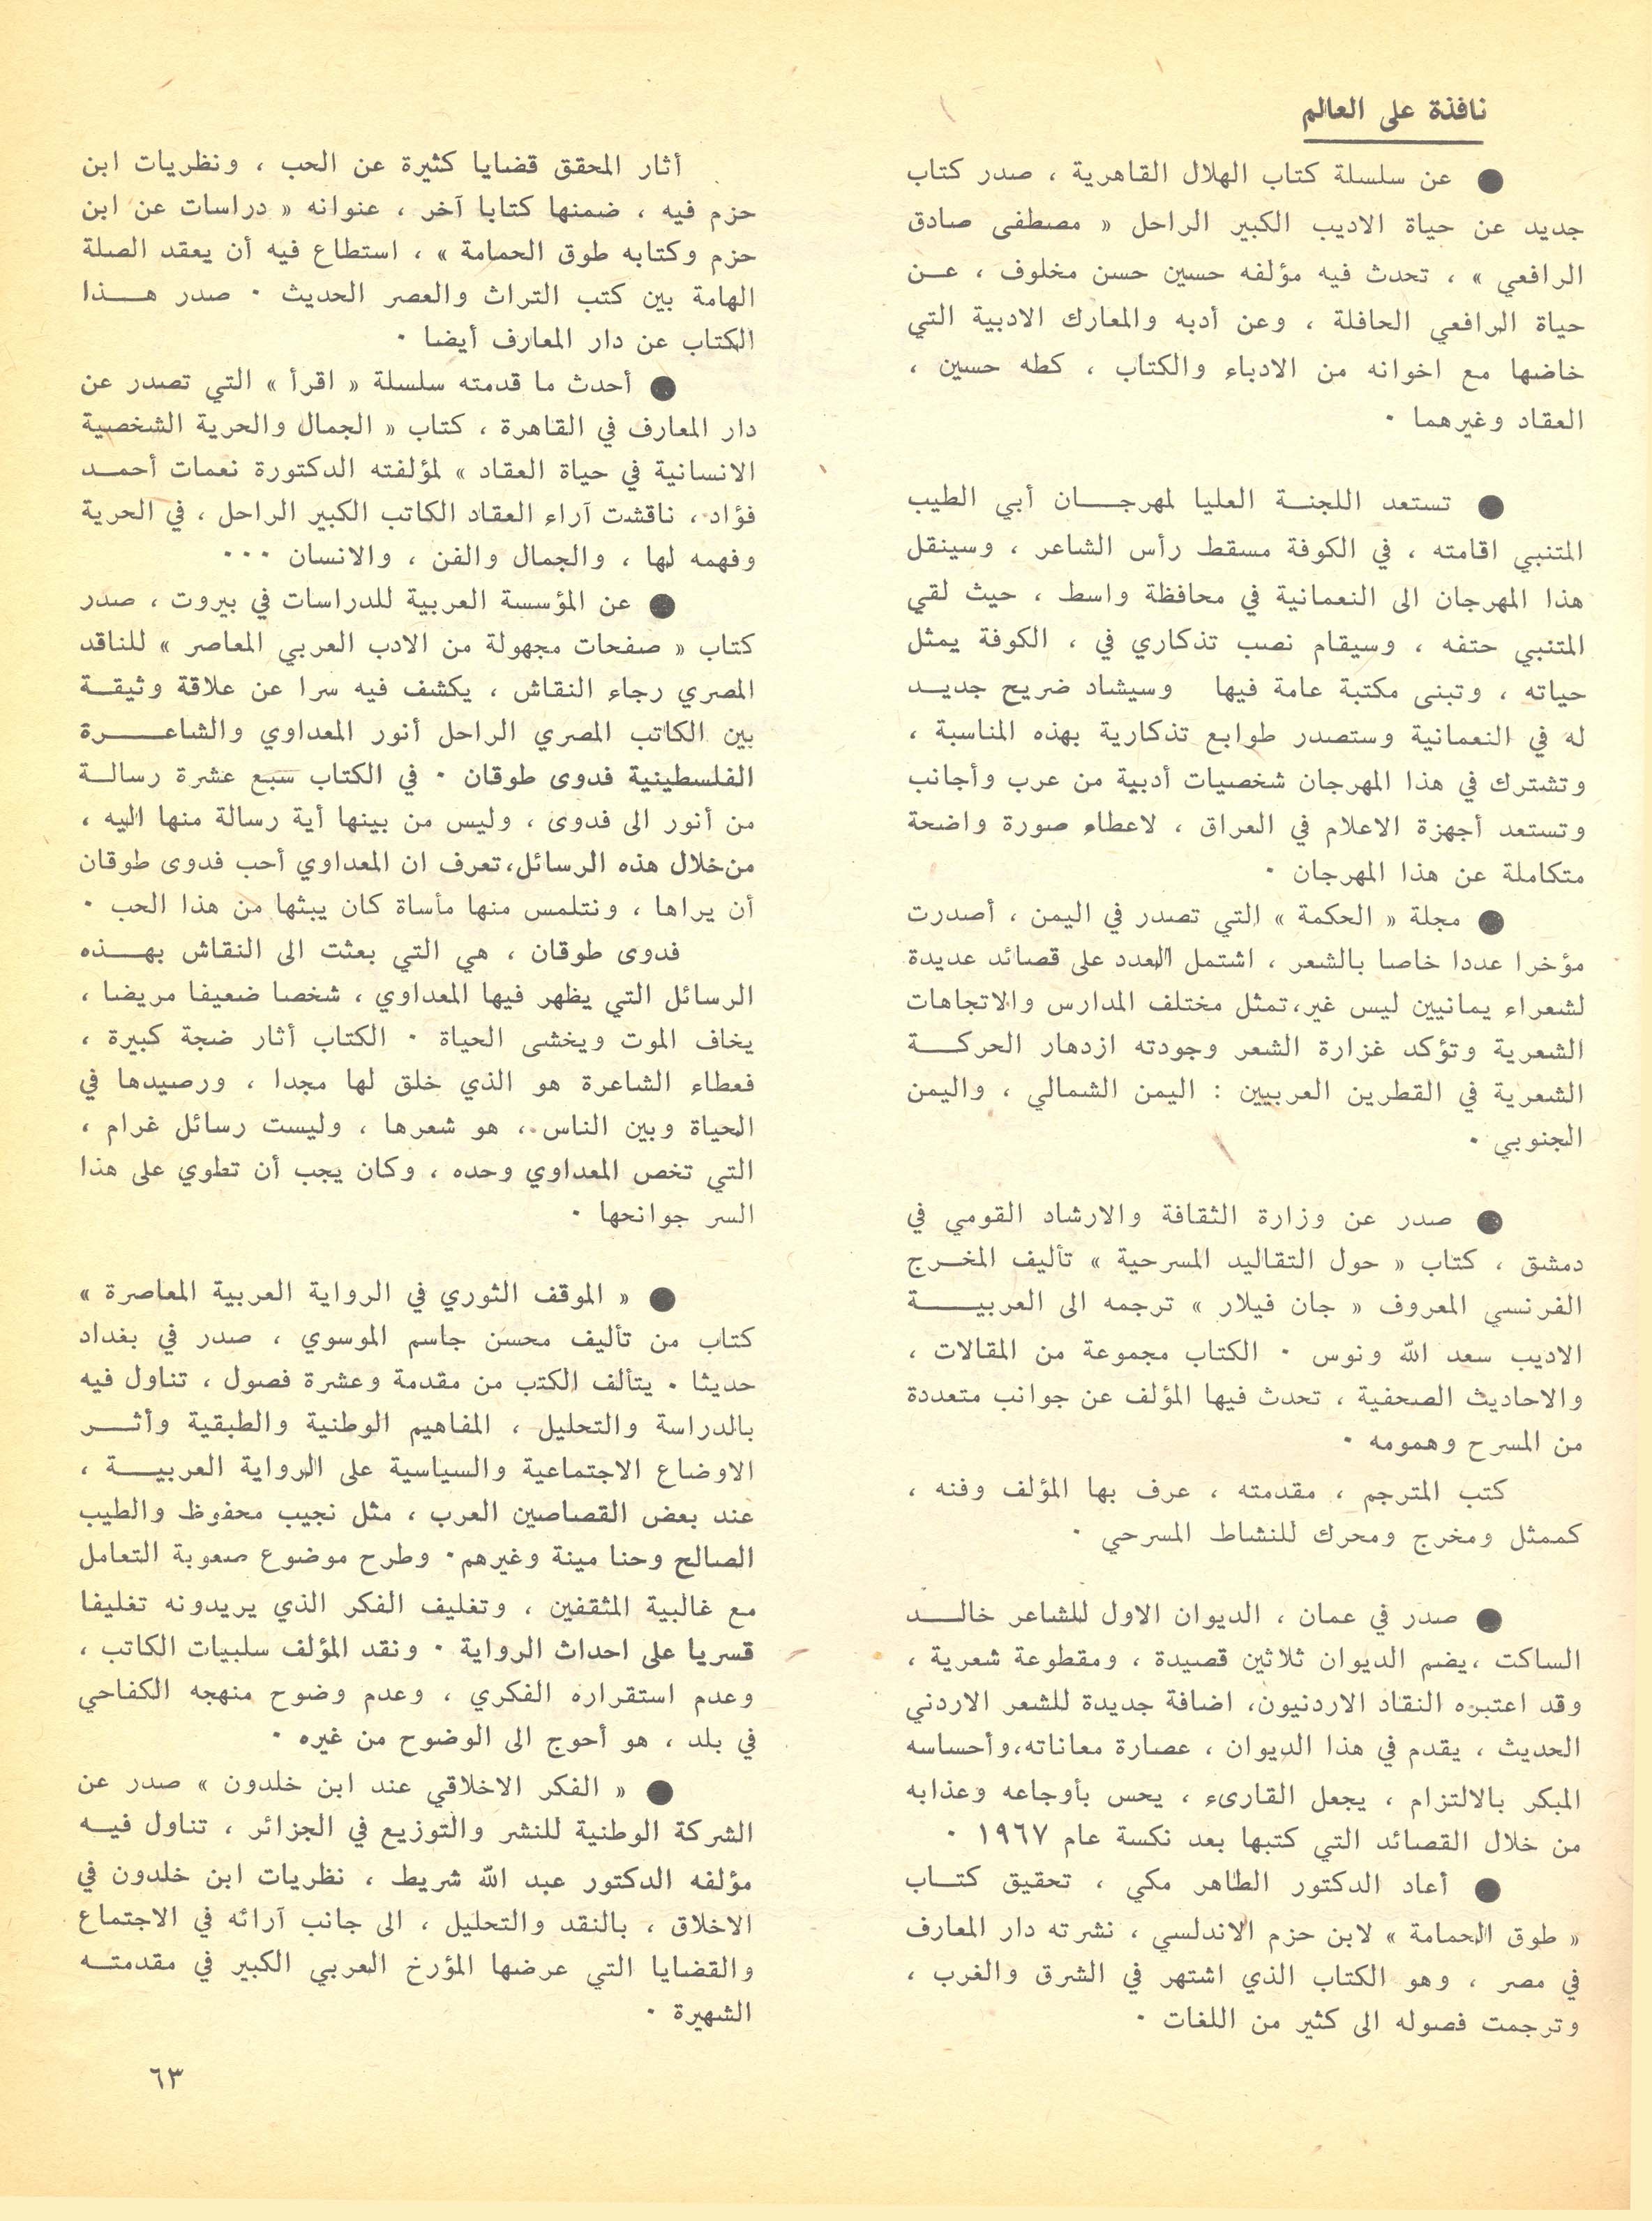 نافذة على العالم
● عن سلسلة كتاب الهلال القاهرية ، صدر كتاب
جديد عن حياة الاديب الكبير الراحل « مصطفى صادق
الرافعي » ، تحدث فيه مؤلفه حسين حسن مخلوف ، عن
حياة الرافعي الحافلة ، وعن أدبه والمعارك الادبية التي
خاضها مع اخوانه من الادباء والكتاب ، كطه حسين ،
العقاد وغيرهما ٠
● تستعد اللجنة العليا لمهرجان أبي الطيب
المتنبي اقامته ، في الكوفة مسقط رأس الشاعر ، وسينقل
هذا المهرجان الى النعمانية في محافظة واسط ، حيث لقي
المتنبي حتفه ، وسيقام نصب تذكاري في ، الكوفة يمثل
حياته ، وتبنى مكتبة عامة فيها وسيشاد ضريح جديد
له في النعمانية وستصدر طوابع تذكارية بهذه المناسبة ،
وتشترك في هذا المهرجان شخصيات أدبية من عرب وأجانب
وتستعد أجهزة الاعلام في العراق ، لاعطاء صورة واضحة
متكاملة عن هذا المهرجان ٠
● مجلة « الحكمة » التي تصدر في اليمن ، أصدرت
مؤخرا عددا خاصا بالشعر ، اشتمل العدد على قصائد عديدة
لشعراء يمانيين ليس غير،تمثل مختلف المدارس والاتجاهات
الشعرية وتؤكد غزارة الشعر وجودته ازدهار الحركة
الشعرية في القطرين العربيين : اليمن الشمالي ، واليمن
الجنوبي ٠
● صدر عن وزارة الثقافة والارشاد القومي في
دمشق ، كتاب « حول التقاليد المسرحية » تأليف المخرج
الفرنسي المعروف « جان فيلار » ترجمه الى العربية
الاديب سعد الله ونوس ٠ الكتاب مجموعة من المقالات ،
والاحاديث الصحفية ، تحدث فيها المؤلف عن جوانب متعددة
من المسرح وهمومه ٠
كتب المترجم ، مقدمته ، عرف بها المؤلف وفنه ،
كممثل ومخرج ومحرك للنشاط المسرحي ٠
● صدر في عمان ، الديوان الاول للشاعر خالد
الساكت ،يضم الديوان ثلاثين قصيدة ، ومقطوعة شعرية ،
وقد اعتبره النقاد الاردنيون، اضافة جديدة للشعر الاردني
الحديث ، يقدم في هذا الديوان ، عصارة معاناته،وأحساسه
المبكر بالالتزام ، يجعل القارىء ، يحس بأوجاعه وعذابه
من خلال القصائد التي كتبها بعد نكسة عام ١٩٦٧ ٠
● أعاد الدكتور الطاهر مكي ، تحقيق كتاب
« طوق الحمامة » لابن حزم الاندلسي ، نشرته دار المعارف
في مصر ، وهو الكتاب الذي اشتهر في الشرق والغرب ،
وترجمت فصوله الى كثير من اللغات ٠
أثار المحقق قضايا كثيرة عن الحب ، ونظريات ابن
حزم فيه ، ضمنها كتابا آخر ، عنوانه « دراسات عن ابن
حزم وكتابه طوق الحمامة » ، استطاع فيه أن يعقد الصلة
الهامة بين كتب التراث والعصر الحديث ٠ صدر هذا
الكتاب عن دار المعارف أيضا ٠
● أحدث ما قدمته سلسلة « اقرأ » التي تصدر عن
دار المعارف في القاهرة ، كتاب « الجمال والحرية الشخصية
الانسانية في حياة العقاد » لمؤلفته الدكتورة نعمات أحمد
فؤاد ، ناقشت آراء العقاد الكاتب الكبير الراحل ، في الحرية
وفهمه لها ، والجمال والفن ، والانسان ٠٠٠
● عن المؤسسة العربية للدراسات في بيروت ، صدر
كتاب « صفحات مجهولة من الادب العربي المعاصر » للناقد
المصري رجاء النقاش ، يكشف فيه سرا عن علاقة وثيقة
بين الكاتب المصري الراحل أنور المعداوي والشاعرة
الفلسطينية فدوى طوقان ٠ في الكتاب سبع عشرة رسالة
من أنور الى فدوى ، وليس من بينها أية رسالة منها اليه ،
من خلال هذه الرسائل،تعرف ان المعداوي أحب فدوى طوقان
أن يراها ، ونتلمس منها مأساة كان يبثها من هذا الحب ٠
فدوى طوقان ، هي التي بعثت الى النقاش بهذه
الرسائل التي يظهر فيها المعداوي ، شخصا ضعيفا مريضا ،
يخاف الموت ويخشى الحياة ٠ الكتاب أثار ضجة كبيرة ،
فعطاء الشاعرة هو الذي خلق لها مجدا ، ورصيدها في
الحياة وبين الناس ، هو شعرها ، وليست رسائل غرام ،
التي تخص المعداوي وحده ، وكان يجب أن تطوي على هذا
السر جوانحها ٠
● « الموقف الثوري في الرواية العربية المعاصرة »
كتاب من تأليف محسن جاسم الموسوي ، صدر في بغداد
حديثا ٠ يتألف الكتب من مقدمة وعشرة فصول ، تناول فيه
بالدراسة والتحليل ، المفاهيم الوطنية والطبقية وأثر
الاوضاع الاجتماعية والسياسية على الرواية العربية ،
عند بعض القصاصين العرب ، مثل نجيب محفوظ والطيب
الصالح وحنا مينة وغيرهم ٠ وطرح موضوع صعوبة التعامل
مع غالبية المثقفين ، وتغليف الفكر الذي يريدونه تغليفا
قسريا على احداث الرواية ٠ ونقد المؤلف سلبيات الكاتب ،
وعدم استقراره الفكري ، وعدم وضوح منهجه الكفاحي
في بلد ، هو أحوج الى الوضوح من غيره ٠
● « الفكر الاخلاقي عند ابن خلدون » صدر عن
الشركة الوطنية للنشر والتوزيع في الجزائر ، تناول فيه
مؤلفه الدكتور عبد الله شريط ، نظريات ابن خلدون في
الاخلاق ، بالنقد والتحليل ، الى جانب آرائه في الاجتماع
والقضايا التي عرضها المؤرخ العربي الكبير في مقدمته
الشهيرة ٠
٦٣